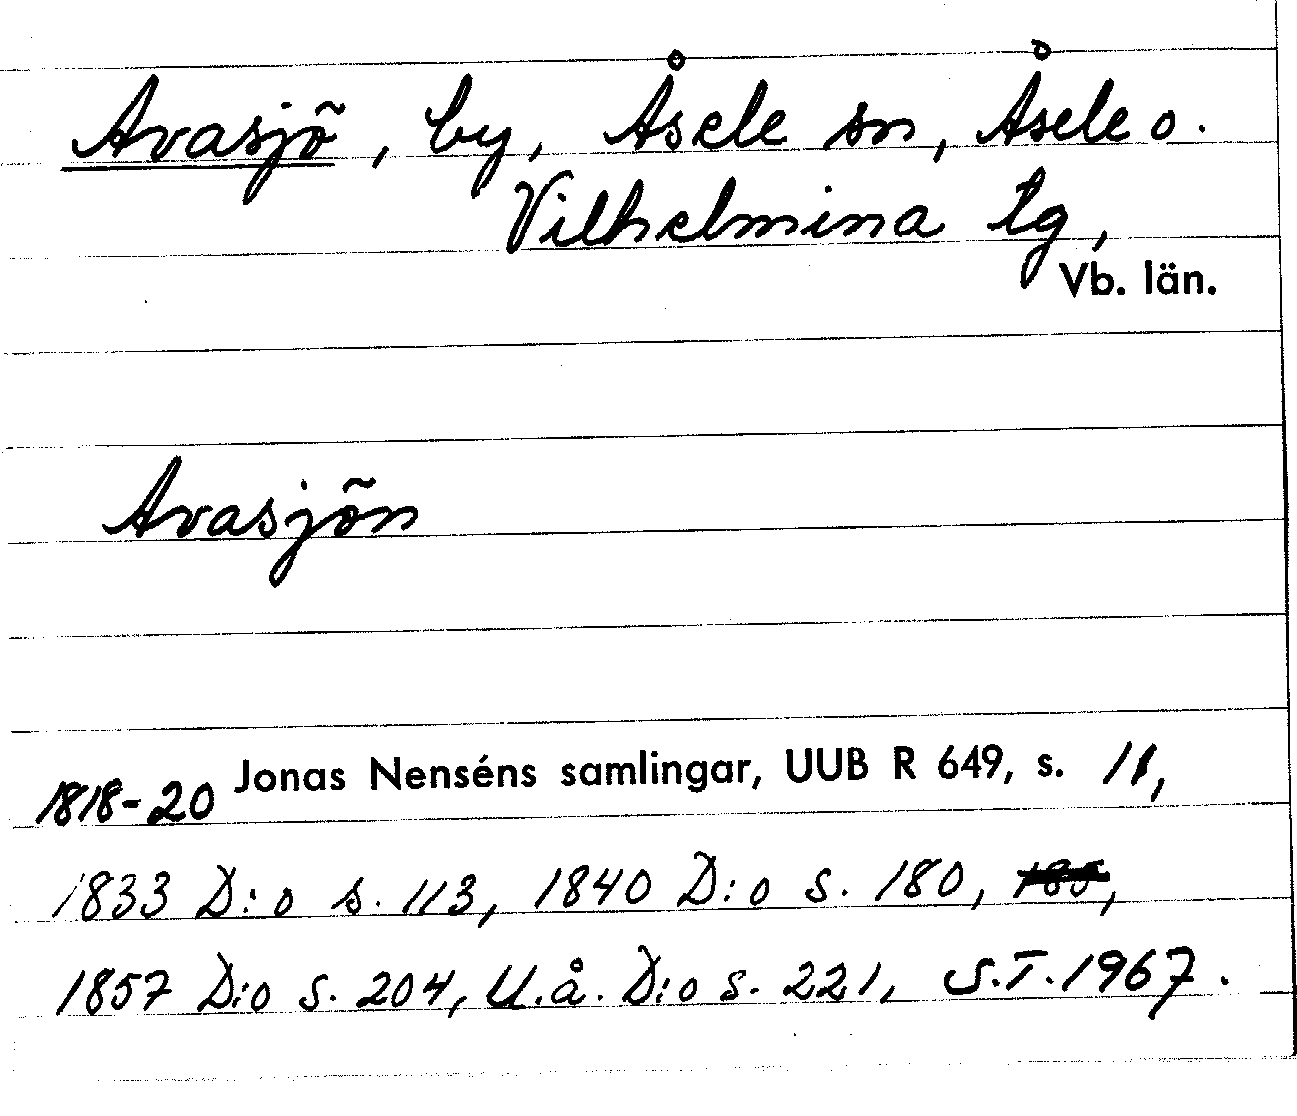 Avasjö, by, Åsele sn, Åsele o.
Vilhelmina tg,
Vb. län.
Avasjön
1818-20 Jonas Nenséns samlingar, UUB R 649, s. 11,
1833 D:o s. 113, 1840 D:o s. 180, 185,
1857 D:o s. 204, U.å. D:o s. 221, S.T. 1967.